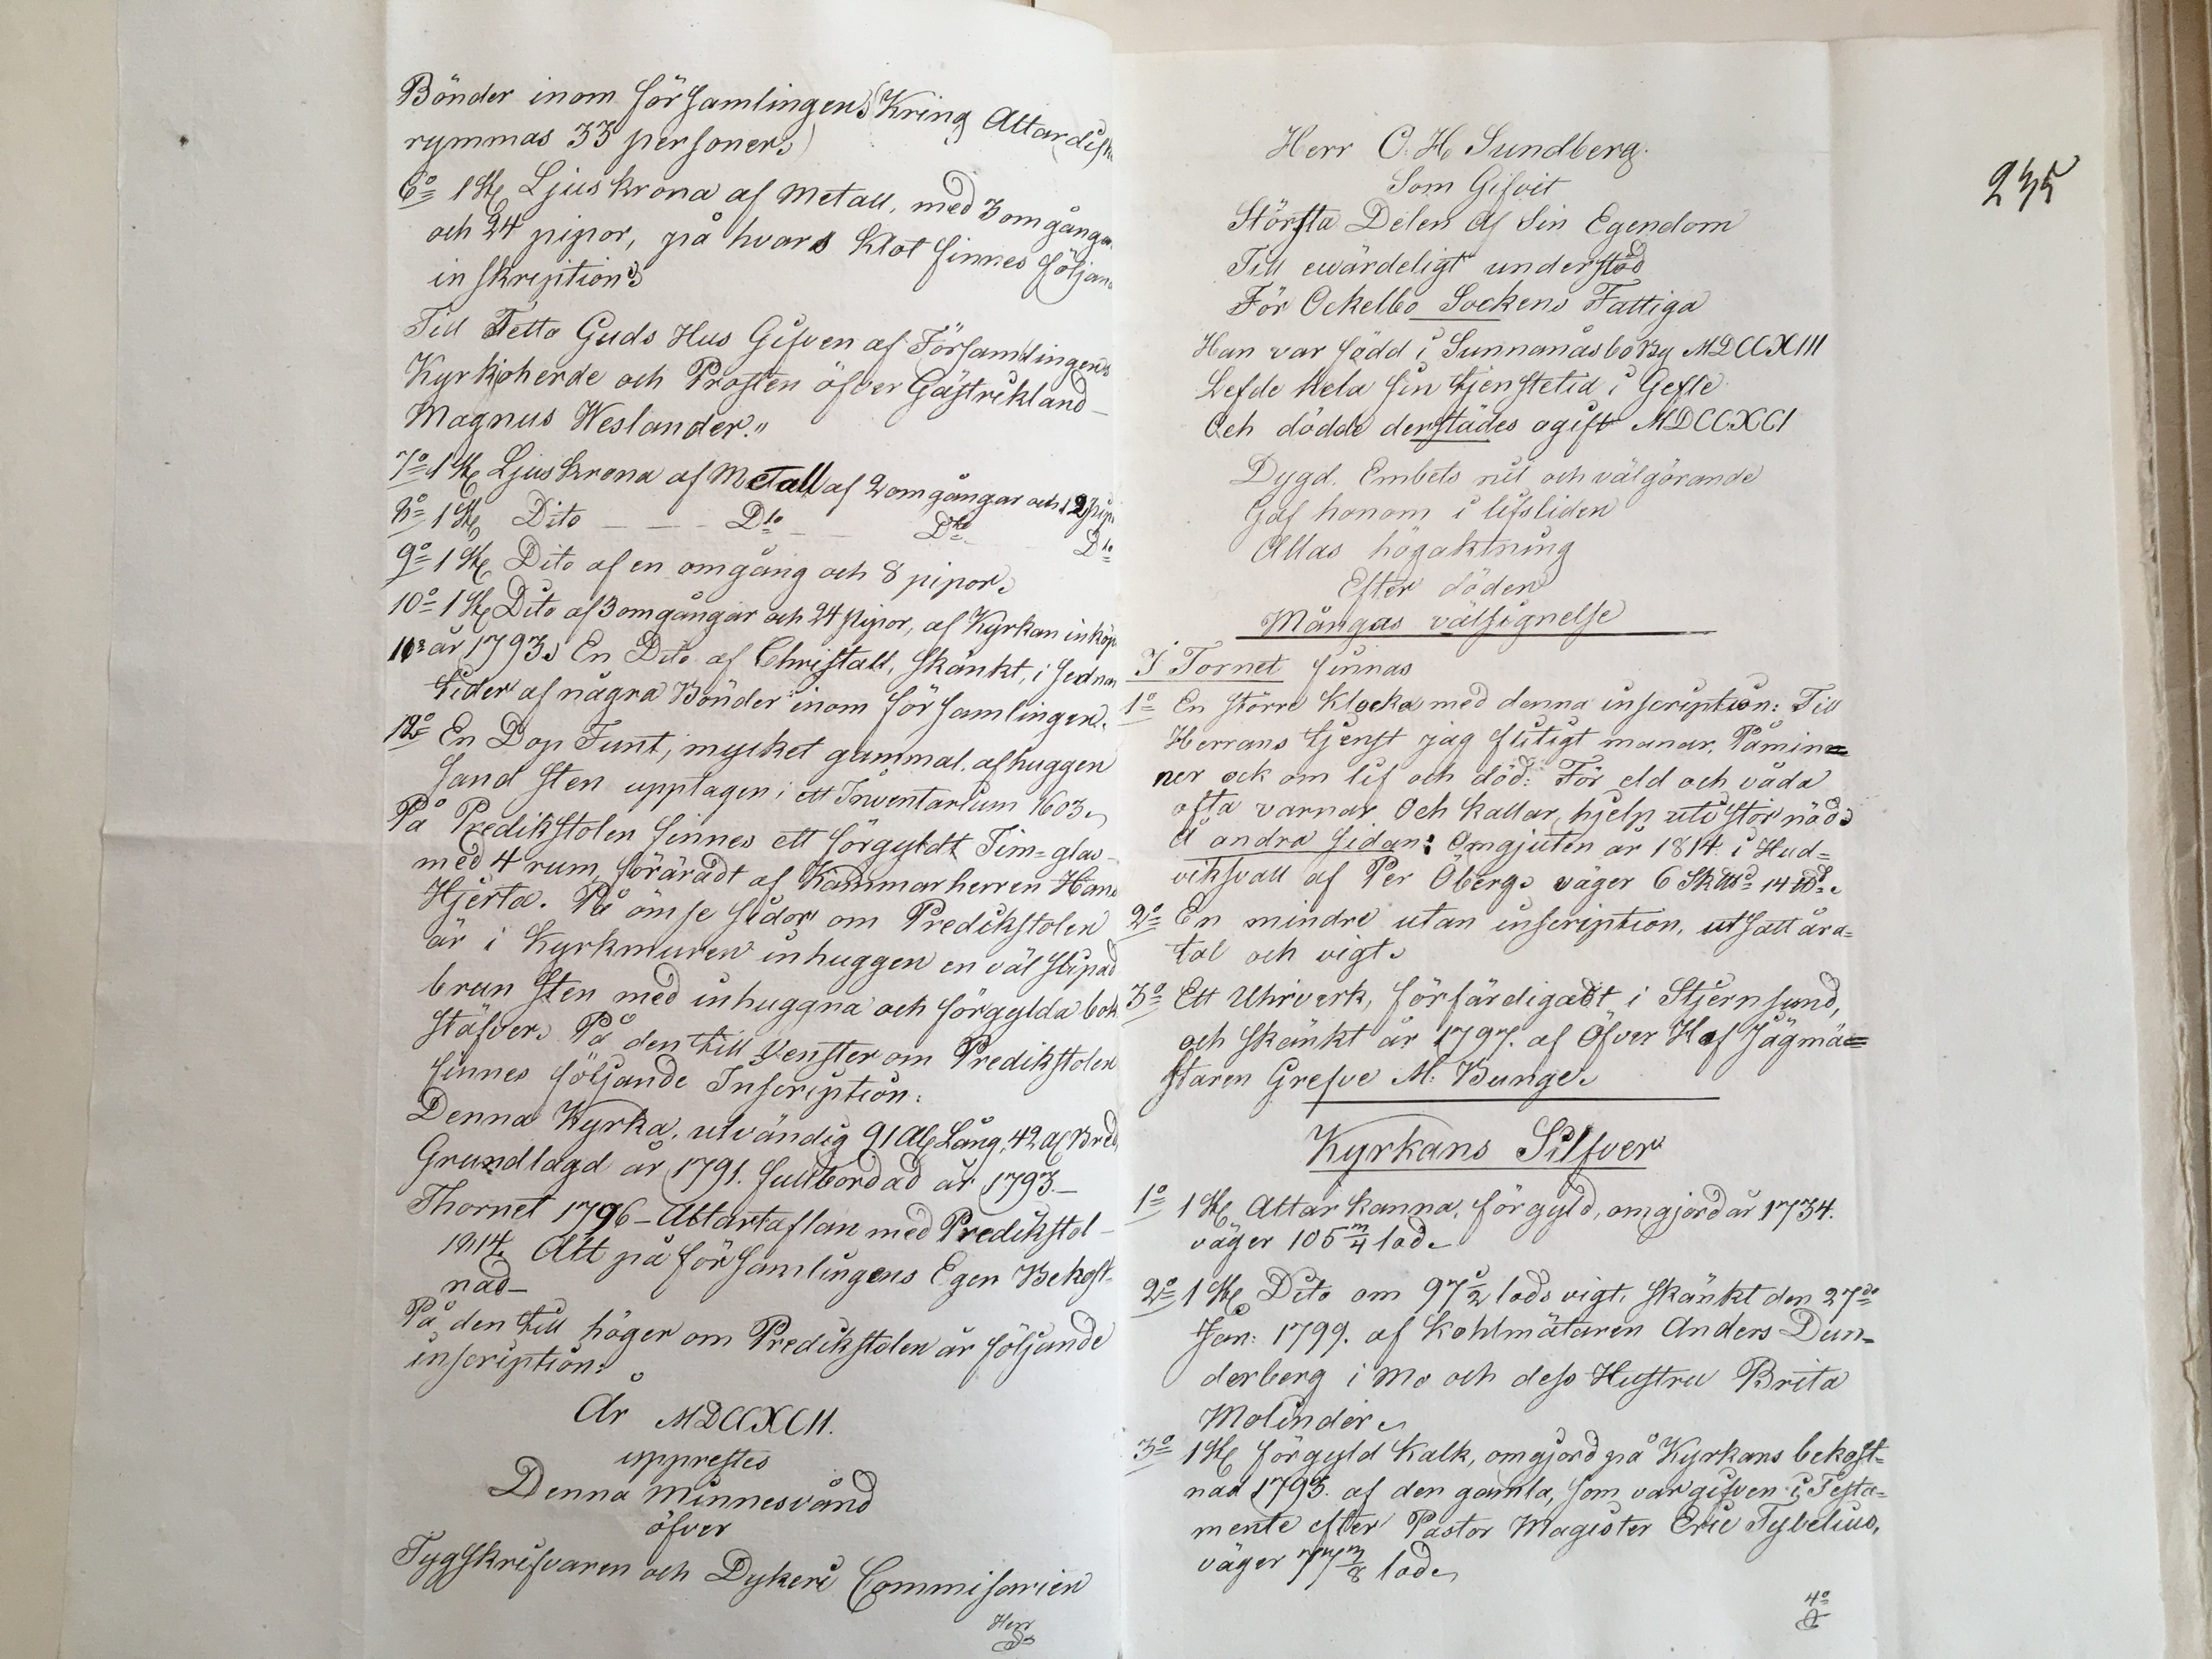 Bönder inom församlingen. (Kring Altardisk
rymmas 33 personer.)
6º 1 St. Ljuskrona af Metall, med 3 omgånga
och 24 pipor, på hvars Klot finnes följan
inskription:
Till Detta Guds Hus Gifven af Församlingens
Kyrkoherde och Prosten öfver Gästrikland
Magnus Weslander."
7º 1 St. Ljuskrona af Metall af 2 omgångar och 12 pip
8º 1 St. Dito — — D:to — — D:to — — D:to
9º 1 St. Dito af en omgång och 8 pipor.
10º 1 St. Dito af 3 omgångar och 24 pipor, af Kyrkan inköp
11º år 1793. En Dito af Christall, skänkt, i sedna
tider af några Bönder inom församlingen.
12º En Dop Funt, mycket gammal, af huggen
sand sten upptagen i ett Inventarium 1603.
På Predikstolen finnes ett förgyldt Tim=glas
med 4 rum, förärädt af Kammarherren Hans
Hjerta. På ömse sidor om Predikstolen
är i Kyrkmuren inhuggen en väl slipad
brun sten med inhuggna och förgylda bok
stäfver. På den till Venster om Predikstolen
finnes följande Inscription:
Denna Kyrka, utvändig 91 Al. Lång, 42 al. Bred,
Grundlagd år 1791. fullbordad år 1793.—
Thornet 1796 — Altartaflan med Predikstol —
1814. Allt på församlingens Egen Bekost-
nad —
På den till höger om Predikstolen är följande
inscription:
År MDCCXCII.
upprestes
Denna Minnesvård
öfver
Tygskrifvaren och Dykeri Commisarien
Herr
Herr O. H. Sundberg.
Som Gifvit
Största Delen Af Sin Egendom
Till ewärdeligt understöd
För Ockelbo Sockens Fattiga
Han var född i Sunnanåsbo By MDCCXIII
Lefde hela sin tjenstetid i Gefle
Och dödde derstädes ogift MDCCXCI
Dygd, Embets nit och välgörande
Gaf honom i lifstiden
Allas högaktning
Efter döden
Mångas välsignelse
I Tornet finnas
1º En större Klocka med denna inscription: Till
Herrans tjenst jag flitigt manar, Påmin=
ner ock om lif och död: För eld och våda
ofta varnar Och kallar hjelp uti stor nöd.
Å andra sidan: Omgjuten år 1814 i Hud=
viksvall af Per Öberg. väger 6 Sk℔d 14 ℔d.
2º En mindre utan inscription, utsatt åra=
tal och vigt.
3º Ett Uhrverk, förfärdigadt i Stjernsund,
och skänkt år 1797. af Öfver Hof Jägmä=
staren Grefve M. Bunge.
Kyrkans Silfver
1º 1 St. Altar kanna, förgyld, omgjord år 1734.
väger 105 3/4 lod.
2º 1 St. Dito om 97 1/2 lods vigt, skänkt den 27de
Jan: 1799. af Kohlmätaren Anders Dun=
derberg i Mo och dess Hustru Brita
Molinder.
3º 1 St. förgyld Kalk, omgjord på Kyrkans bekost=
nad 1793. af den gamla, som var gifven i Testa=
mente efter Pastor Magister Eric Tybelius,
väger 77 3/8 lod.
4º
235